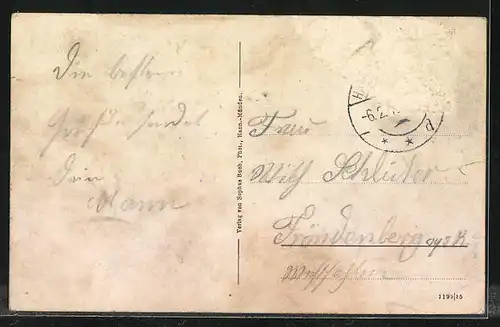 Die besten
Grüße sendet
Dein
Mann
Verlag von Sophus Buch, Phot., Hann.-Münden.
-6.2.
Frau
Wilh Schlüter
Fröndenberg
Westfalen
1195/15